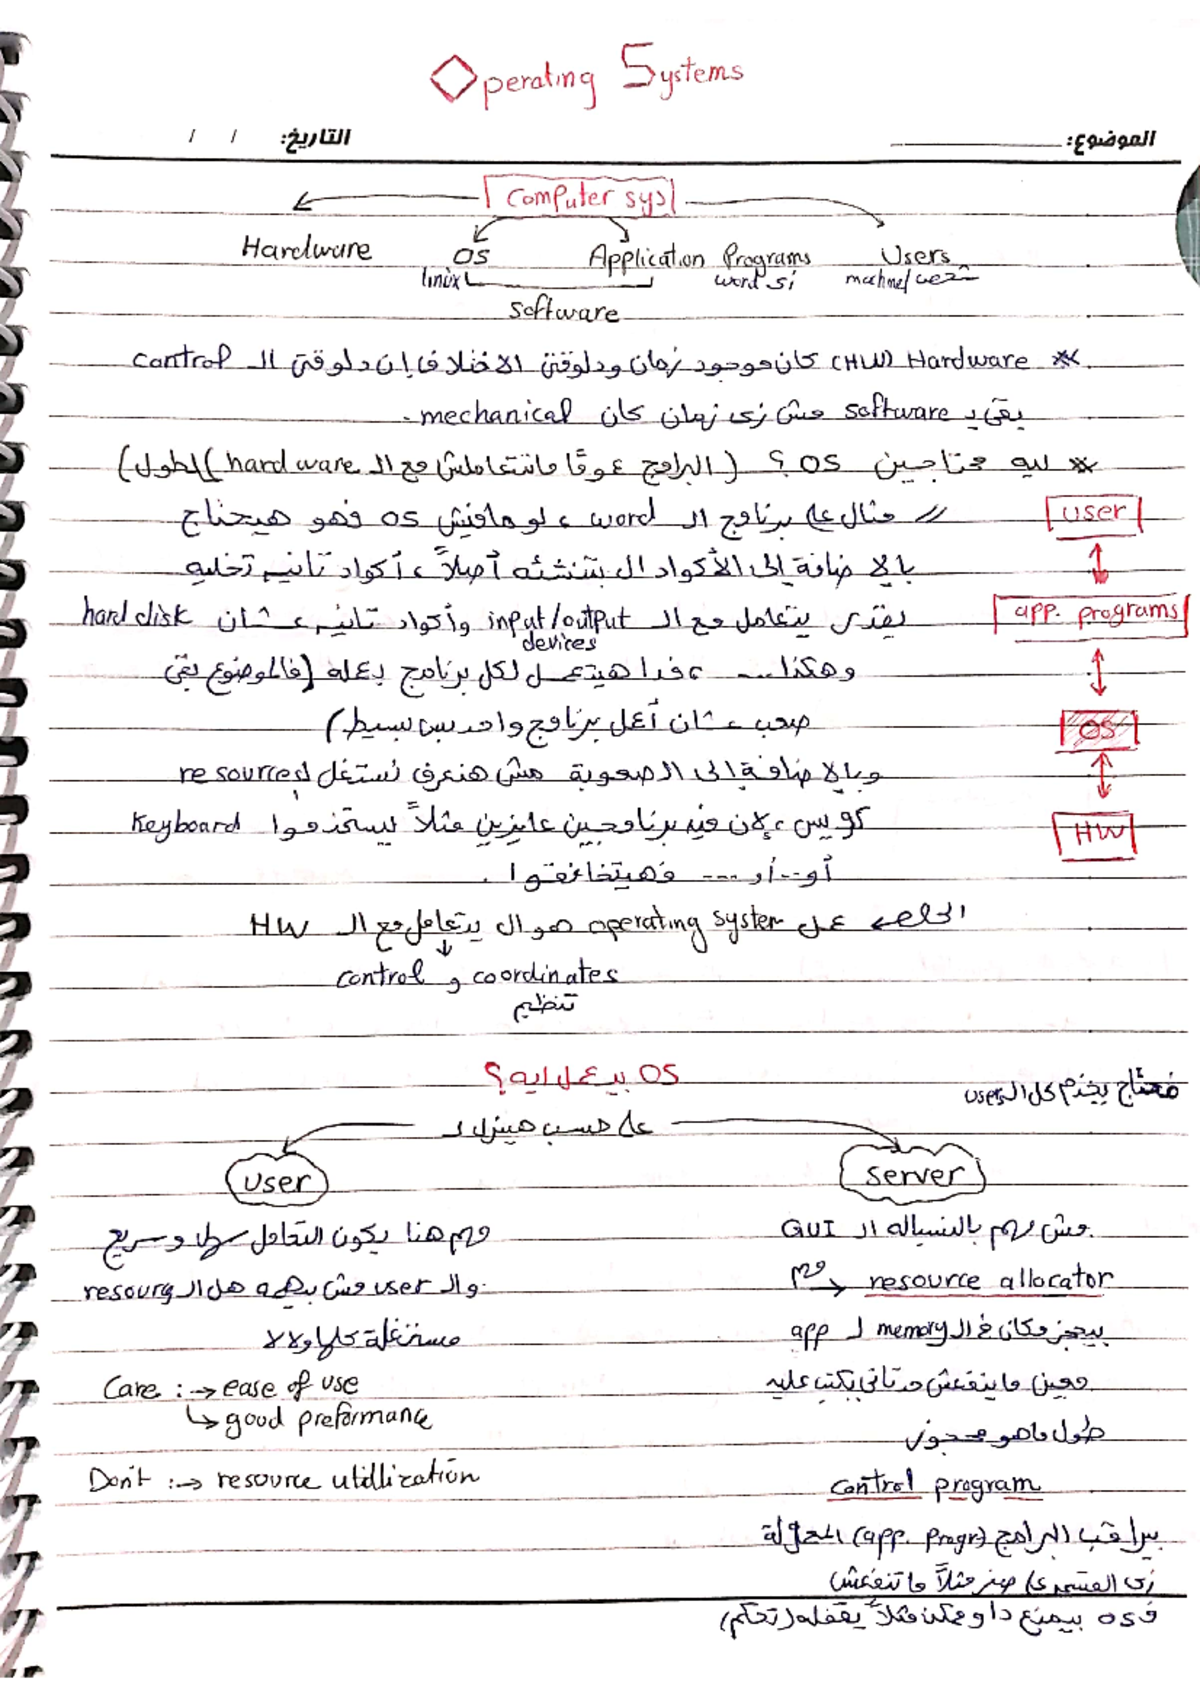 Operating Systems
الموضوع: التاريخ: / /
Computer sys
Hardware OS Application Programs Users
linux زي word machine/شخص
Software
** Hardware (HW) كان موجود زمان ودلوقتى الاختلاف إن دلوقتى الـ control
بقى بـ software مش زى زمان كان mechanical.
** ليه محتاجين OS ؟ (البرامج عموماً ما بتتعاملش مع الـ hardware لطول)
// مثال على برنامج الـ word ، لو مافيش OS فهو هيحتاج
بالإضافة إلى الأكواد ال بتنشئه أصلاً ، أكواد تانيه تخليه
يقدر يتعامل مع الـ input/output وأكواد تانيه عشان hard disk
devices
وهكذا... ، فدا هيتعمل لكل برنامج بعمله (فالموضوع بقى
صعب عشان أعمل برنامج واحد بس بسيط)
وبالإضافة إلى الصعوبة مش هنعرف نستغل الـ resources
كويس ، لإن فيه برنامجين عايزين مثلاً يستخدموا Keyboard
أو.. أو .... فهيتخانقوا .
user
app. programs
OS
HW
الخلاصة عمل operating system هو ال يتعامل مع الـ HW
control و coordinates
تنظيم
OS بيعمل ايه ؟
على حسب هينزل لـ
فمحتاج يخدم كل الـ users
user
مهم هنا يكون التعامل سهل وسريع
والـ user مش بيهمه هل الـ resourcs
مستغلة كلها ولا لا
Care : → ease of use
↳ good preformance
Don't : → resource utillization
server
مش مهم بالنسباله الـ GUI
مهم → resource allocator
بيحجز مكان فى الـ memory لـ app
معين ما ينفعش حد تانى يكتب عليه
طول ما هو محجوز
control program
بيراقب البرامج (app. progrs) المحملة
زى القسمة على صفر مثلاً ما تنفعش
فـ OS بيمنع دا وممكن مثلاً يقفله (تحكم)